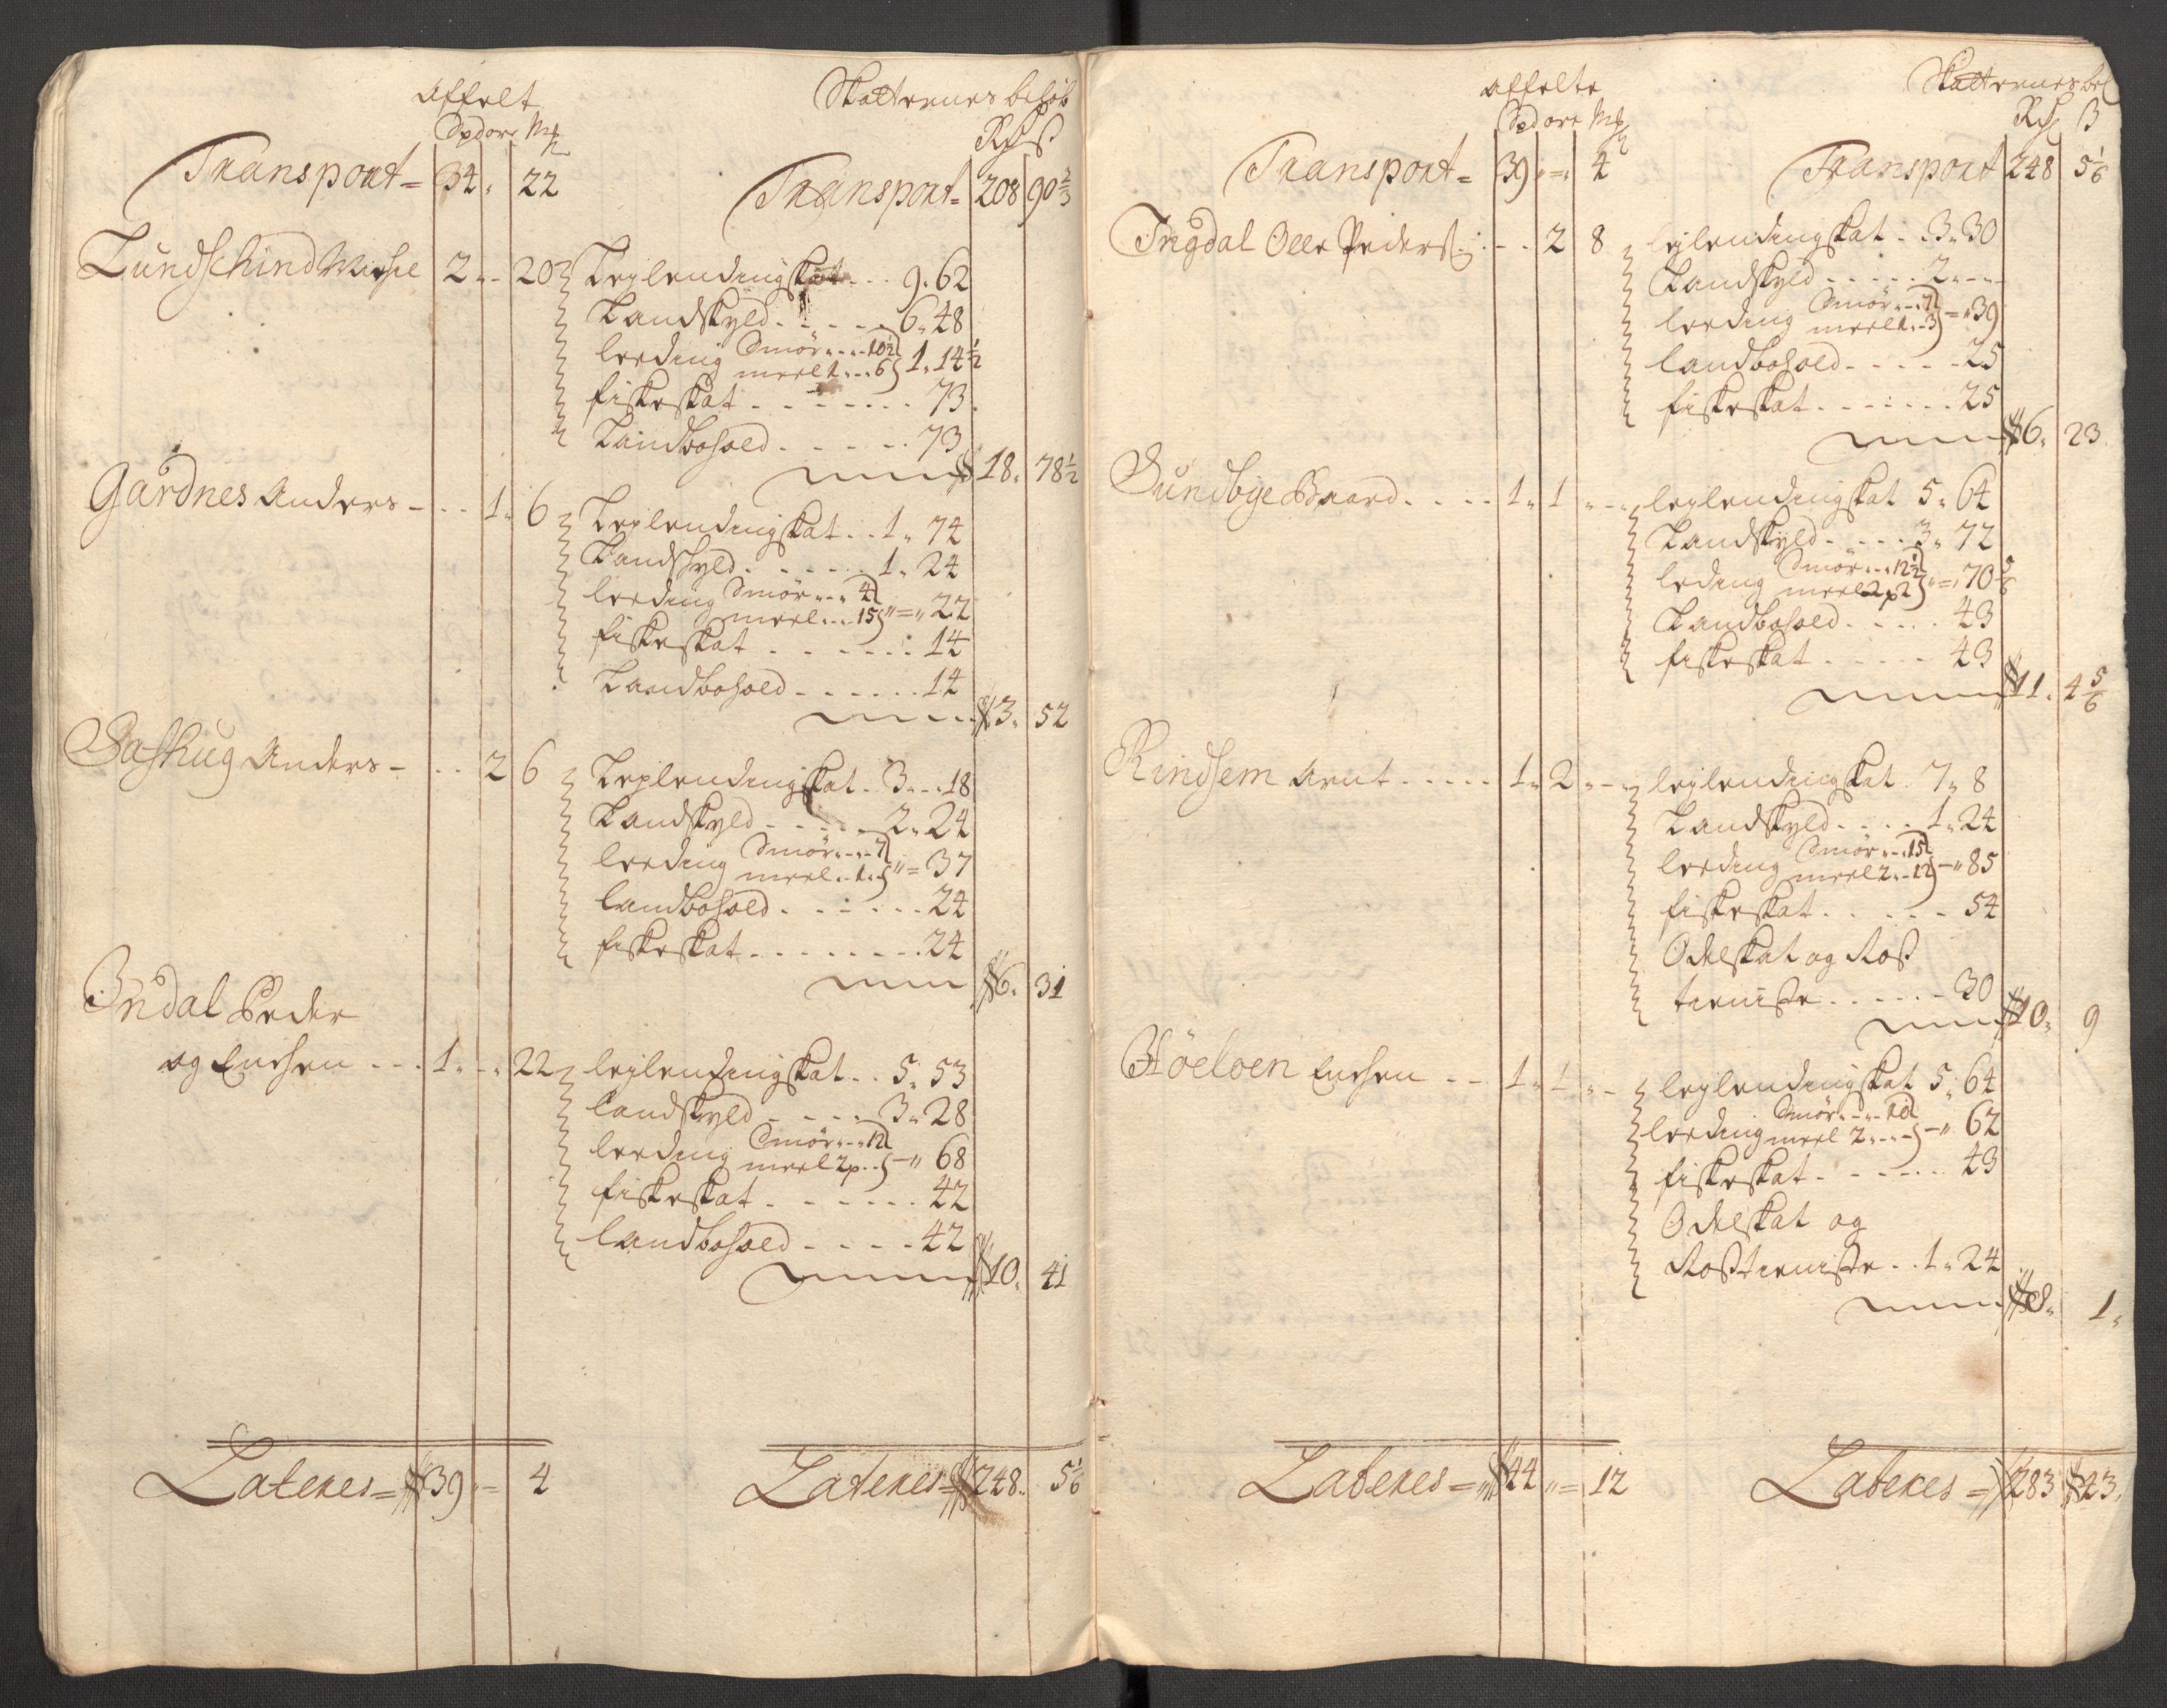 Affelt
Spdore Mk
Skatternes beløb
Rdr ß
Transport = 34 " 22
Transport = 208 90 2/3
Lundschind Michel 2 - - 20
Leylendingskat . . . 9 . 62
Landskyld . . . . . 6 . 48
leeding Smör . . . 10 1/2
meel 1 . . . 6 } 1 . 14 1/2
fiskeskat . . . . . . 73
Landbohold . . . . . . 73
18 . 78 1/2
Gårdnes Anders - . . 1 . 6
Leylendingskat . . 1 . 74
Landskyld . . . . . 1 . 24
leeding Smör . . . 4
meel . . . 15 } " = " 22
fiskeskat . . . . . . 14
Landbohold . . . . . . 14
3 . 52
Sashug Anders - . . 2 6
Leylendingskat . 3 . . . 18
Landskyld . . . . . 2 . 24
leeding Smör . . . 7
meel . 1 . } " = 37
landbohold . . . . . . 24
fiskeskat . . . . . . . . 24
6 . 31
Indal Peder
og Enchen . . . 1 . - . 22
leylendingskat . . 5 . 53
landskyld . . . . 3 . 28
leeding Smör . . . 12
meel 2 p . . } - " 68
fiskeskat . . . . . . 42
landbohold . . . . 42
10 . 41
Lateres = 39 = 4
Lateres = 248 . 5 1/6
affelte
Spdore Mk
Skatternes bel
Rdr ß
Transport = 39 " = " 4
Transport 248 5 1/6
Ingdal Olle Peders: . - . 2 8
leylendingskat . . 3 . 30
Landskyld . . . . . 2 . - -
leeding Smör . . . 7
meel 1 . . 3 } = " 39
landbohold . . . . . 25
fiskeskat . . . . . . . 25
6 . 23
Sundbye Baard . . . . 1 . 1 . - -
leylendingskat 5 . 64
Landskyld . . . . . 3 . 72
leding Smör . . . 12 1/2
meel 2 p 2 } " = " 70 5/6
Landbohold . . . . . 43
fiskeskat . . . . . 43
11 . 4 5/6
Rindsem Arnt . . . . . 1 . 2 . - -
leylendingskat . 7 . 8
Landskyld . . . . 1 . 24
leeding Smör . . . 15
meel 2 . . 12 } - " 85
fiskeskat . . . . . . 54
Odelskat og Ross
tieniste . . . . . . 30
10 . 9
Höeloen Enchen . . 1 . 1 . - -
leylendingskat 5 . 64
leeding Smör . . . 10
meel 2 . . . . } - " 62
fiskeskat . . . . . . . 43
Odelskat og
Rosstieniste . . 1 . 24
8 . 1 .
Lateres = " 44 " = 12
Lateres = 283 23 .